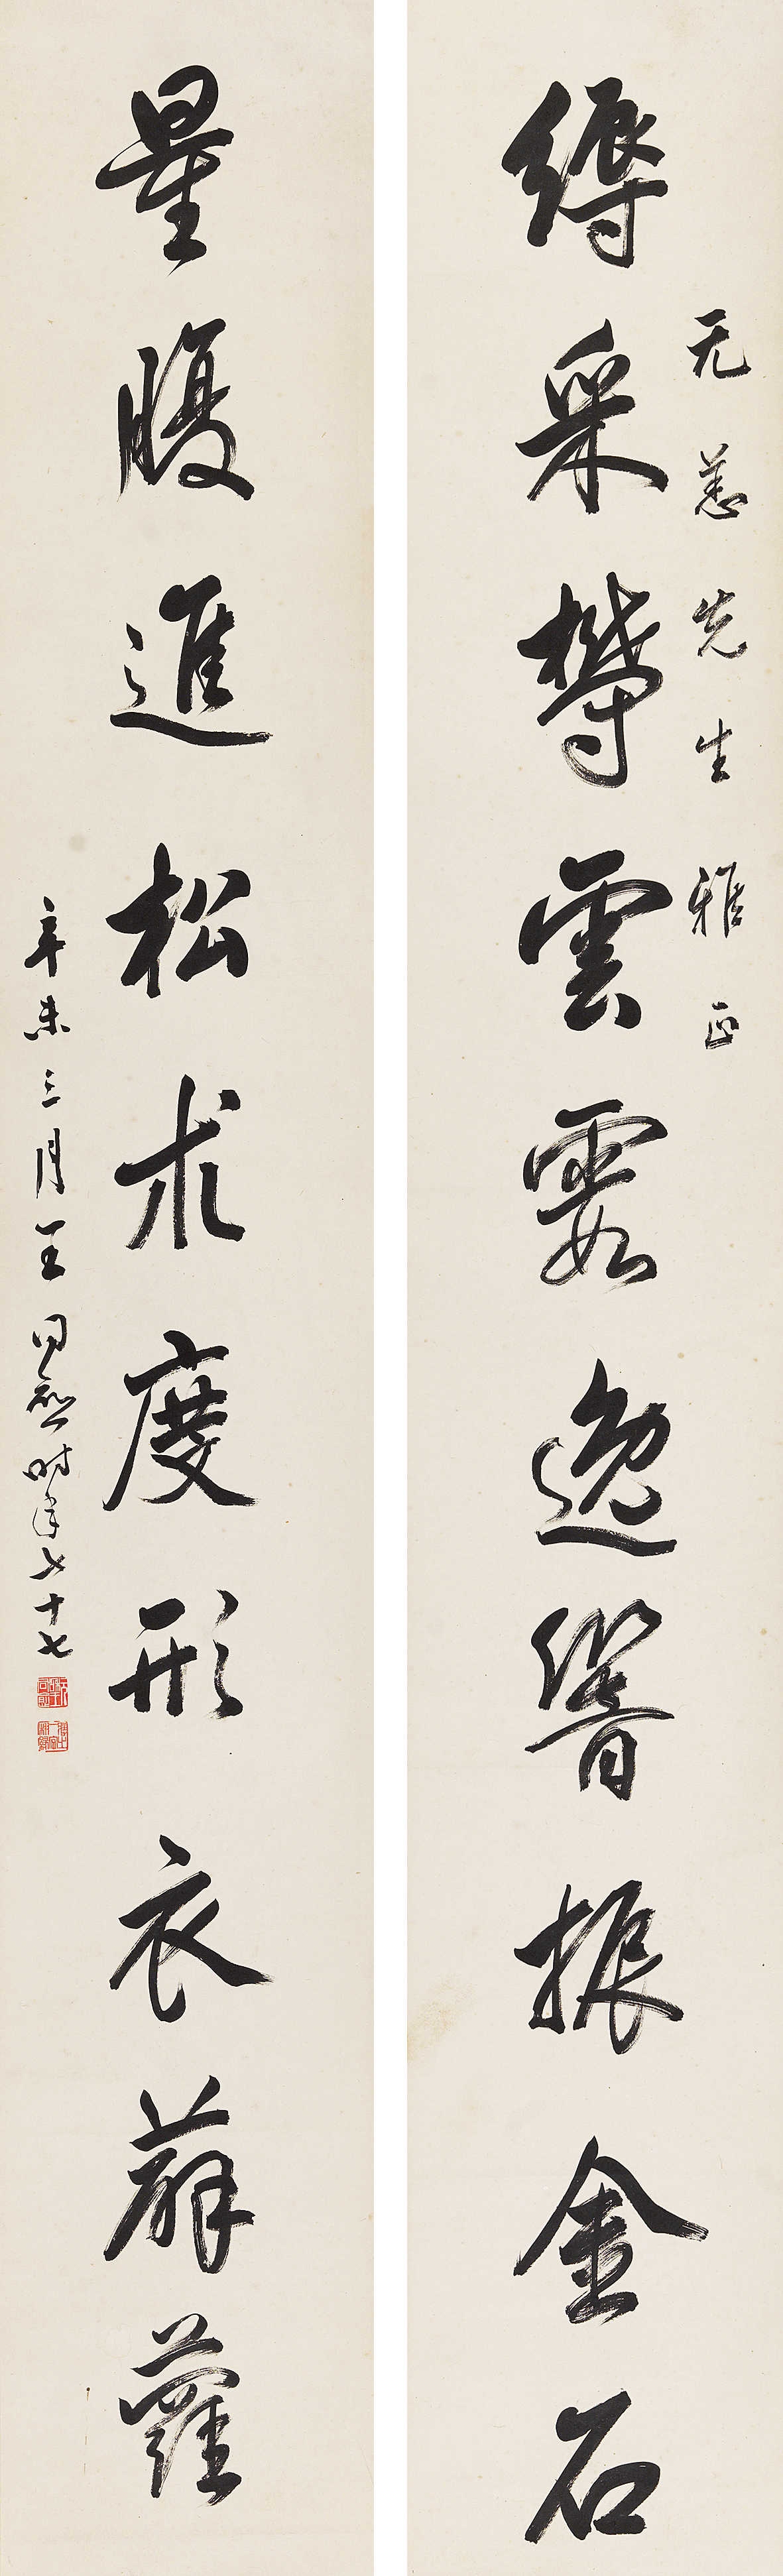 縟采鬱雲霞逸響振金石
无恙先生雅正
量腹進松朮度形衣薜蘿
辛未三月王同愈時年七十七